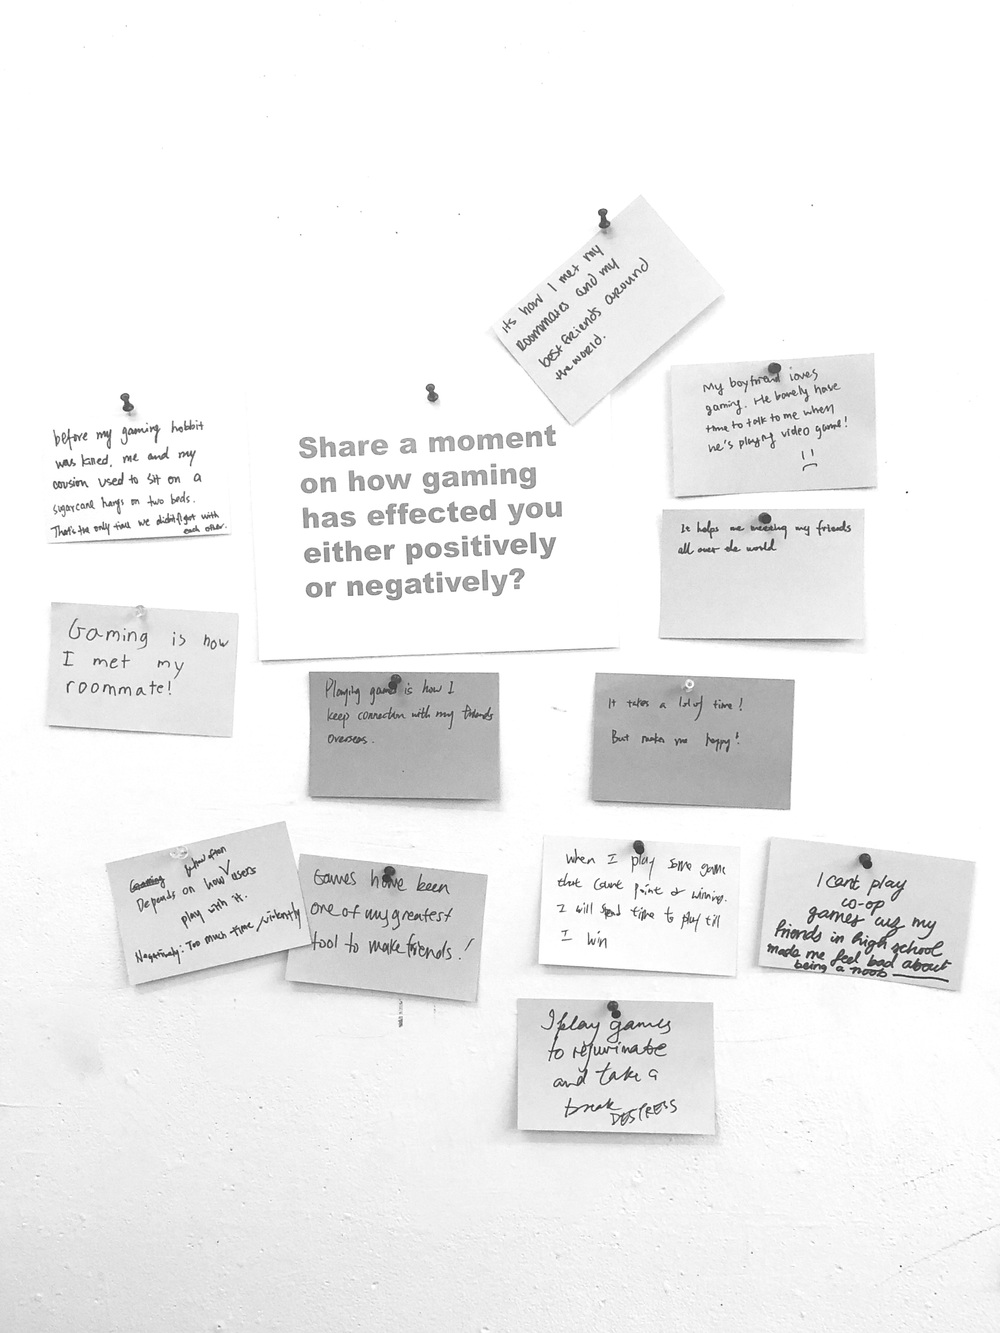 its how I met my
roommates and my
best friends around
the world.
My boyfriend loves
gaming. He barely have
time to talk to me when
he's playing video game!
before my gaming hobbit
was killed, me and my
cousion used to sit on a
sugarcane hangs on two beds.
That's the only time we didn't fight with
each other.
Share a moment
on how gaming
has effected you
either positively
or negatively?
It helps me meeting my friends
all over the world
Gaming is how
I met my
roommate!
Playing games is how I
keep connection with my friends
overseas.
It takes a lot of time!
But makes me happy!
how often
Depends on how users
play with it.
Negatively: Too much time / violently
Games have been
one of my greatest
tool to make friends!
when I play some game
that count point or winning.
I will spend time to play till
I win
I cant play
co-op
games cuz my
friends in high school
made me feel bad about
being a noob
I play games
to rejuvinate
and take a
break
DESTRESS